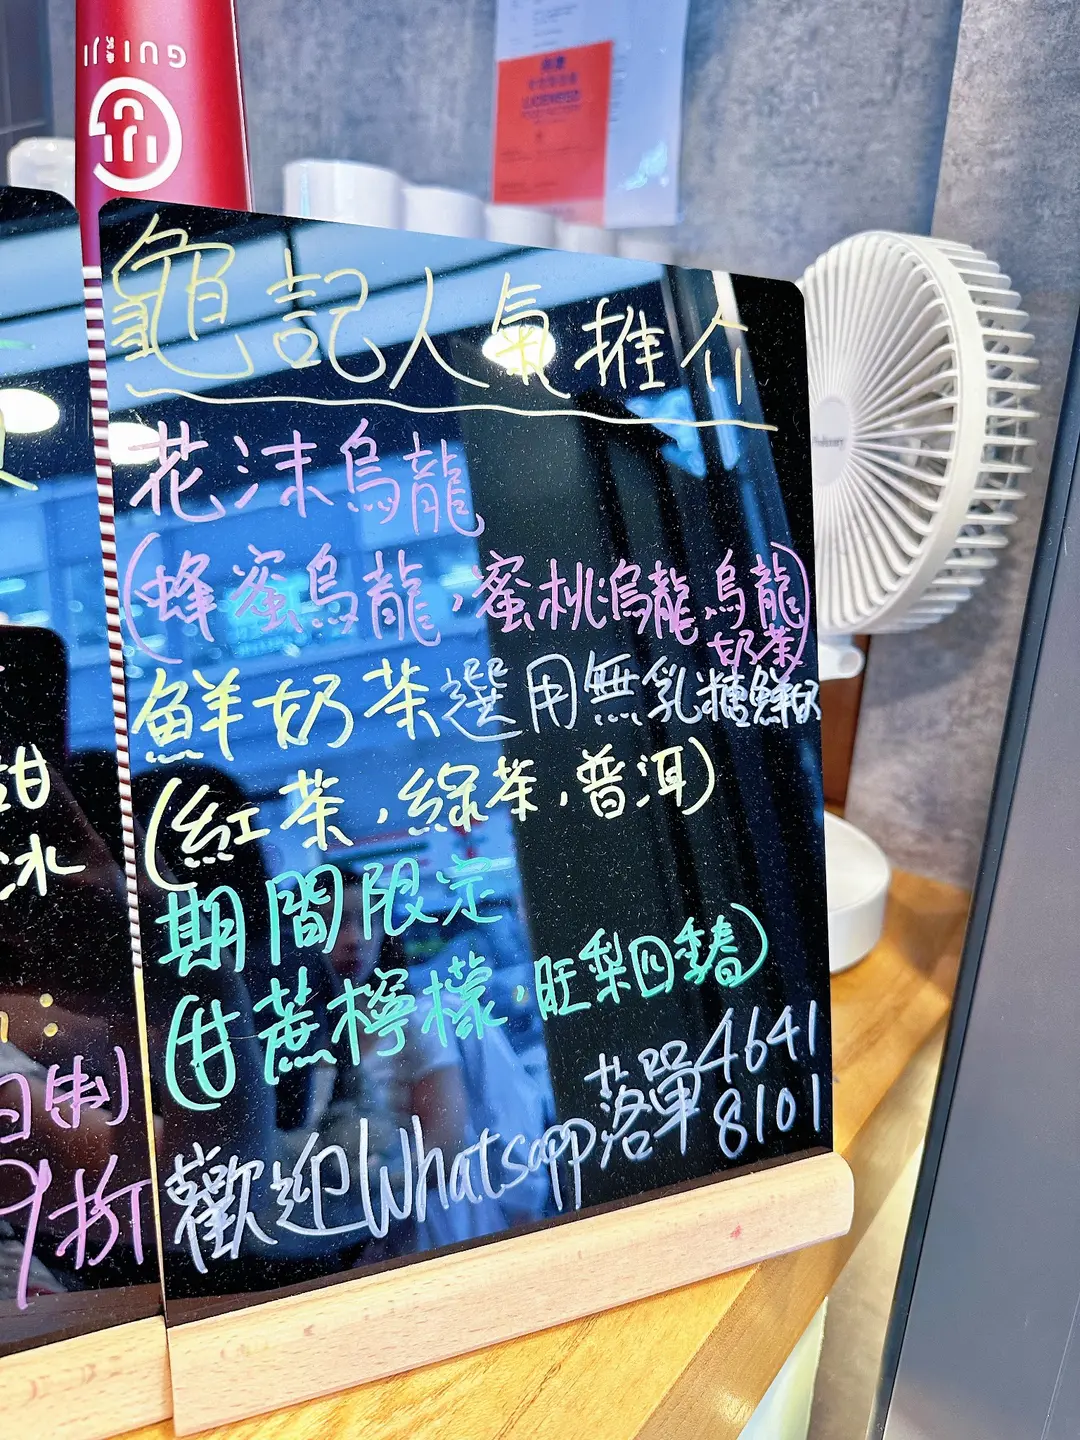 GUIJI
龜記人氣推介
花沫烏龍
(蜂蜜烏龍,蜜桃烏龍,烏龍奶茶)
鮮奶茶選用無乳糖鮮奶
(紅茶,綠茶,普洱)
期間限定
(甘蔗檸檬,旺梨四季春)
歡迎Whatsapp落單4641
8101
甜
冰
制
9折